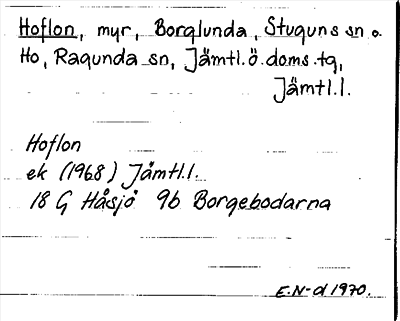 Hoflon, myr, Borglunda, Stuguns sn o.
Ho, Ragunda sn, Jämtl.ö.doms.tg,
Jämtl.l.
Hoflon
ek (1968) Jämtl.l.
18 G Håsjö 9b Borgebodarna
E.N-d 1970.